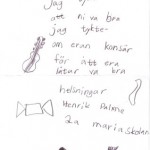 jag
att ni va bra
jag tykte
om eran konsär
för att era
låtar va bra
helsningar
Henrik Palma
2a mariaskolan